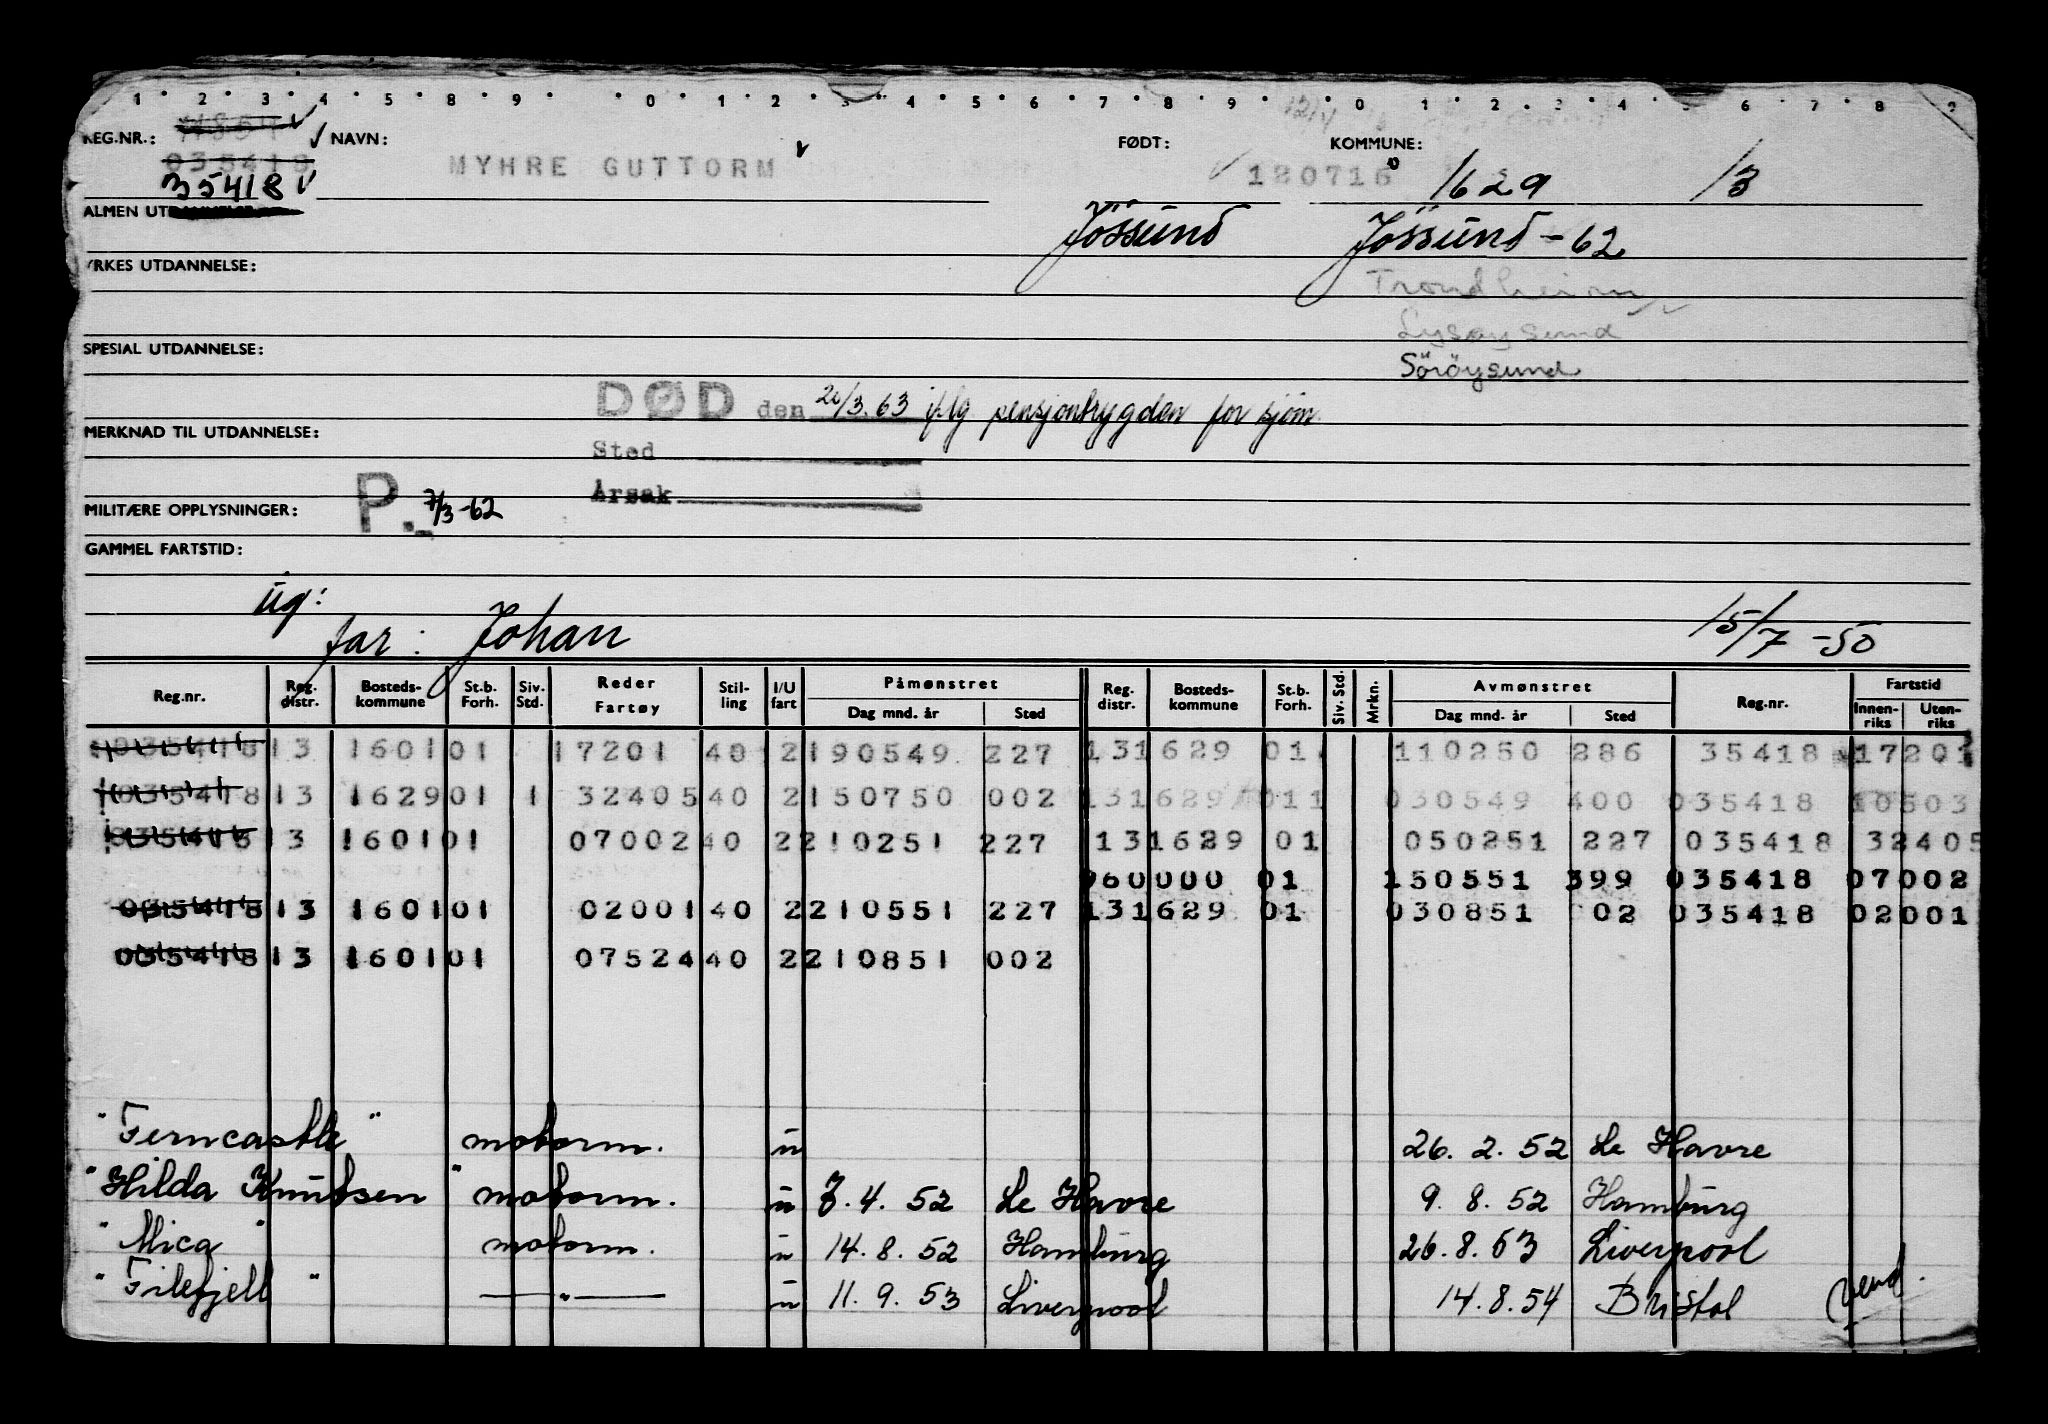 1 2 3 4 5 8 9 0 1 2 3 4 5 6 7 8 9 0 1 2 3 4 5 6 7 8 9
REG.NR.: NAVN: FØDT: KOMMUNE:
035418 MYHRE GUTTORM 180716 1629 13
35418
ALMEN UTDANNELSE: Jössund Jössund - 62
YRKES UTDANNELSE: Trondheim
Lysøysund
SPESIAL UTDANNELSE: Söröysund
DØD den 20/3.63 iflg pensjontrygden for sjøm.
MERKNAD TIL UTDANNELSE:
Sted
Årsak
MILITÆRE OPPLYSNINGER: P. 7/3-62
GAMMEL FARTSTID:
ug:
far: Johan 15/7-50
Reg.nr. Reg. distr. Bosteds-kommune St.b. Forh. Siv. Std. Reder Fartøy Stil-ling I/U fart Påmønstret Dag mnd. år Sted Reg. distr. Bosteds-kommune St.b. Forh. Siv. Std. Mrkn. Avmønstret Dag mnd. år Sted Reg.nr. Fartstid Innen-riks Uten-riks
035418 13 1601 01 17201 48 2 190549 227 13 1629 01 110250 286 35418 17201
035418 13 1629 01 1 32405 40 2 150750 002 13 1629 011 030549 400 035418 10503
035418 13 1601 01 07002 40 2 210251 227 13 1629 01 050251 227 035418 32405
960000 01 150551 399 035418 07002
035418 13 1601 01 02001 40 2 210551 227 13 1629 01 030851 02 035418 02001
035418 13 1601 01 07524 40 2 210851 002
"Ferncastle" motorm. u 26. 2. 52 Le Havre
"Hilda Knudsen" motorm. u 7. 4. 52 Le Havre 9. 8. 52 Hamburg
"Mica" motorm. u 14. 8. 52 Hamburg 26. 8. 53 Liverpool
"Filefjell" —"— u 11. 9. 53 Liverpool 14. 8. 54 Bristol vend.